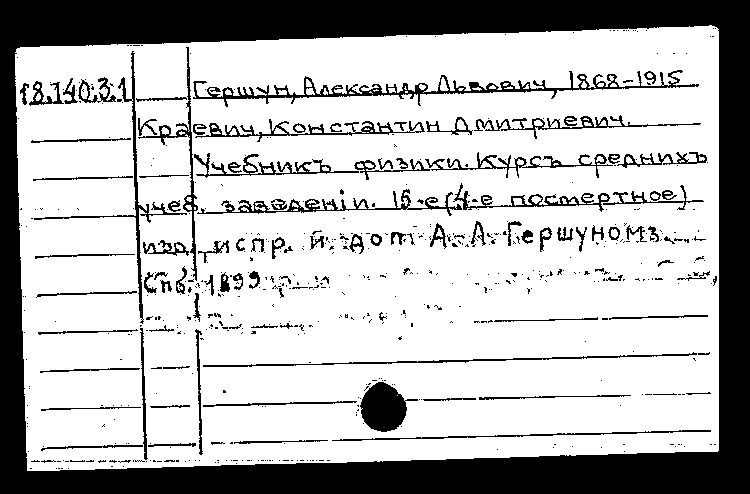 18.140.3.1 Гершун, Александр Львович, 1868-1915
Краевич, Константин Дмитриевич.
Учебникъ физики. Курсъ среднихъ
учеб. заведеніи. 15-е (4-е постертное)
изд., испр. и доп А. Л. Гершуномъ.
Спб. 1899